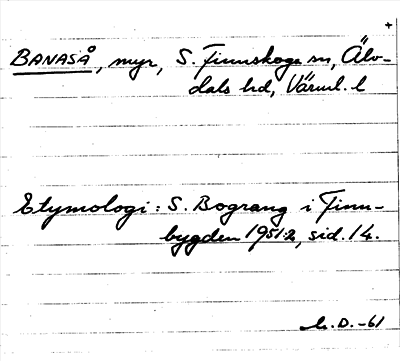 +
BANASÅ, myr, S. Finnskoga sn, Älv-
dals hd, Värml. l
Etymologi: S. Bograng i Finn-
bygden 1951:2, sid. 14.
L.D. -61